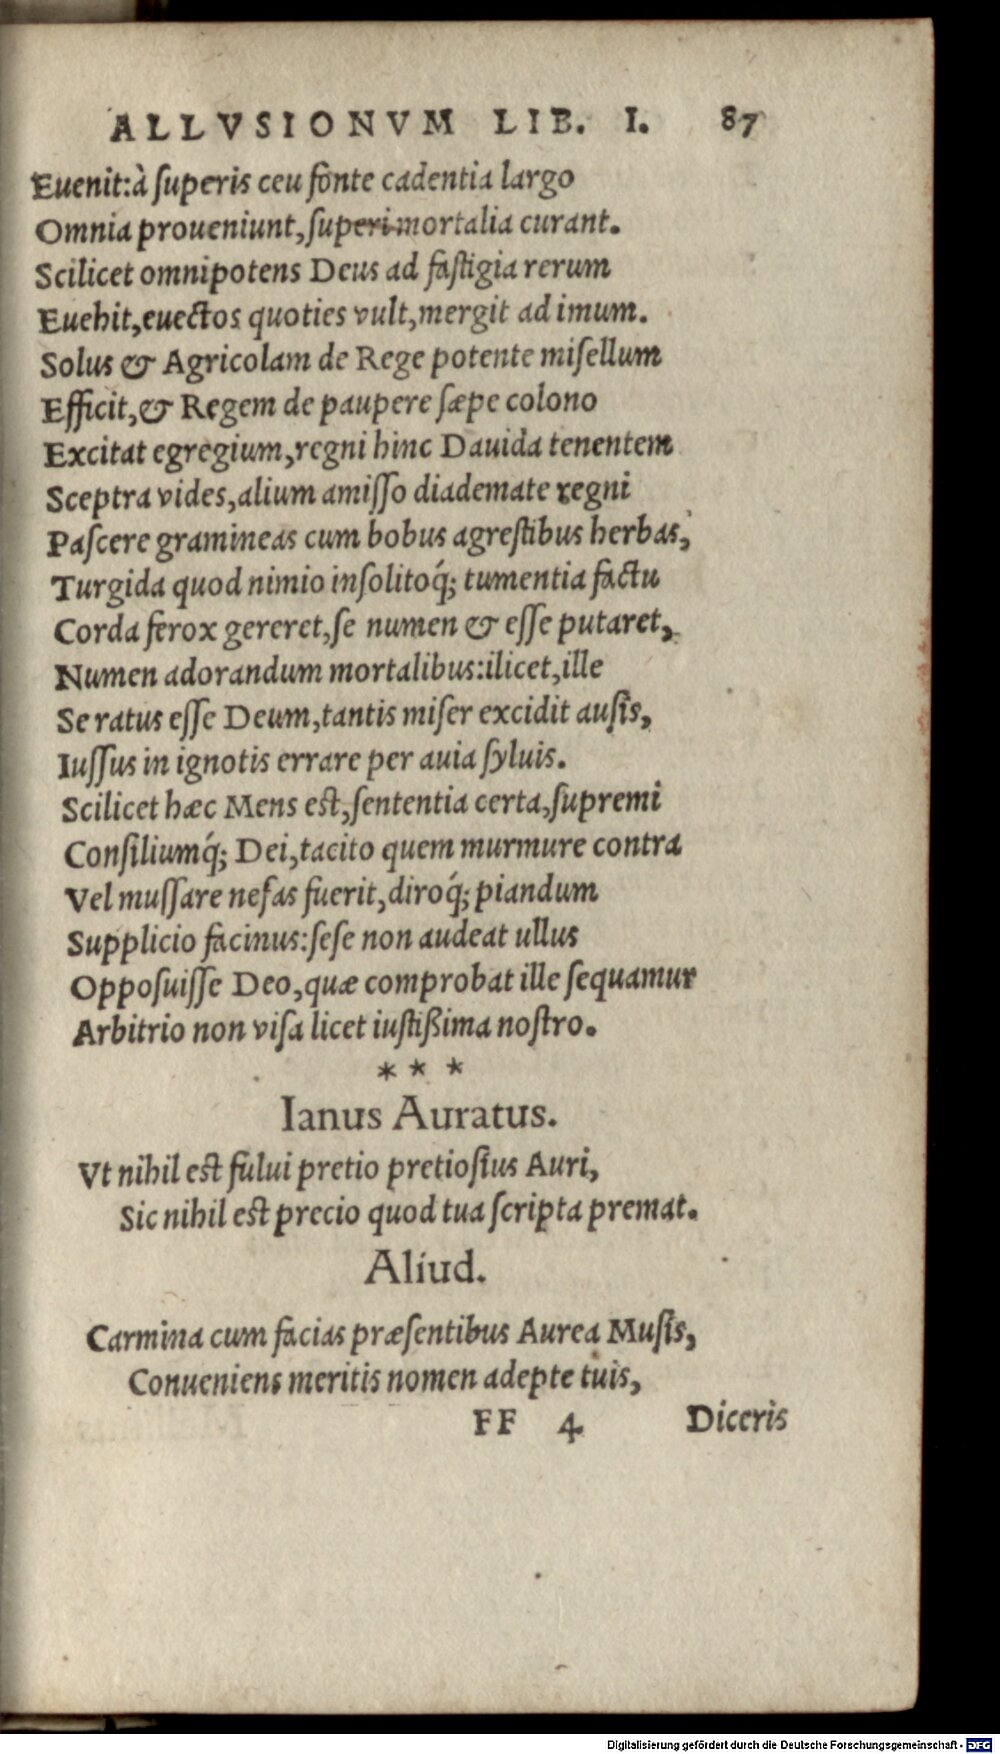 ALLVSIONVM LIB. I. 87
Euenit:à ſuperis ceu fonte cadentia largo
Omnia proueniunt,ſuperi mortalia curant.
Scilicet omnipotens Deus ad faſtigia rerum
Euehit,euectos quoties vult,mergit ad imum.
Solus & Agricolam de Rege potente miſellum
Efficit,& Regem de paupere ſæpe colono
Excitat egregium,regni hinc Dauida tenentem
Sceptra vides,alium amiſſo diademate regni
Paſcere gramineas cum bobus agreſtibus herbas,
Turgida quod nimio inſolitoq́; tumentia factu
Corda ferox gereret,ſe numen & eſſe putaret,
Numen adorandum mortalibus:ilicet,ille
Se ratus eſſe Deum,tantis miſer excidit auſis,
Iuſſus in ignotis errare per auia ſyluis.
Scilicet hæc Mens eſt,ſententia certa,ſupremi
Conſiliumq́; Dei,tacito quem murmure contra
Vel muſſare nefas fuerit,diroq́; piandum
Supplicio facinus:ſeſe non audeat ullus
Oppoſuiſſe Deo,quæ comprobat ille ſequamur
Arbitrio non viſa licet iuſtißima noſtro.
* * *
Ianus Auratus.
Vt nihil eſt fului pretio pretioſius Auri,
Sic nihil eſt precio quod tua ſcripta premat.
Aliud.
Carmina cum facias præſentibus Aurea Muſis,
Conueniens meritis nomen adepte tuis,
FF 4 Diceris
Digitalisierung gefördert durch die Deutsche Forschungsgemeinschaft - DFG